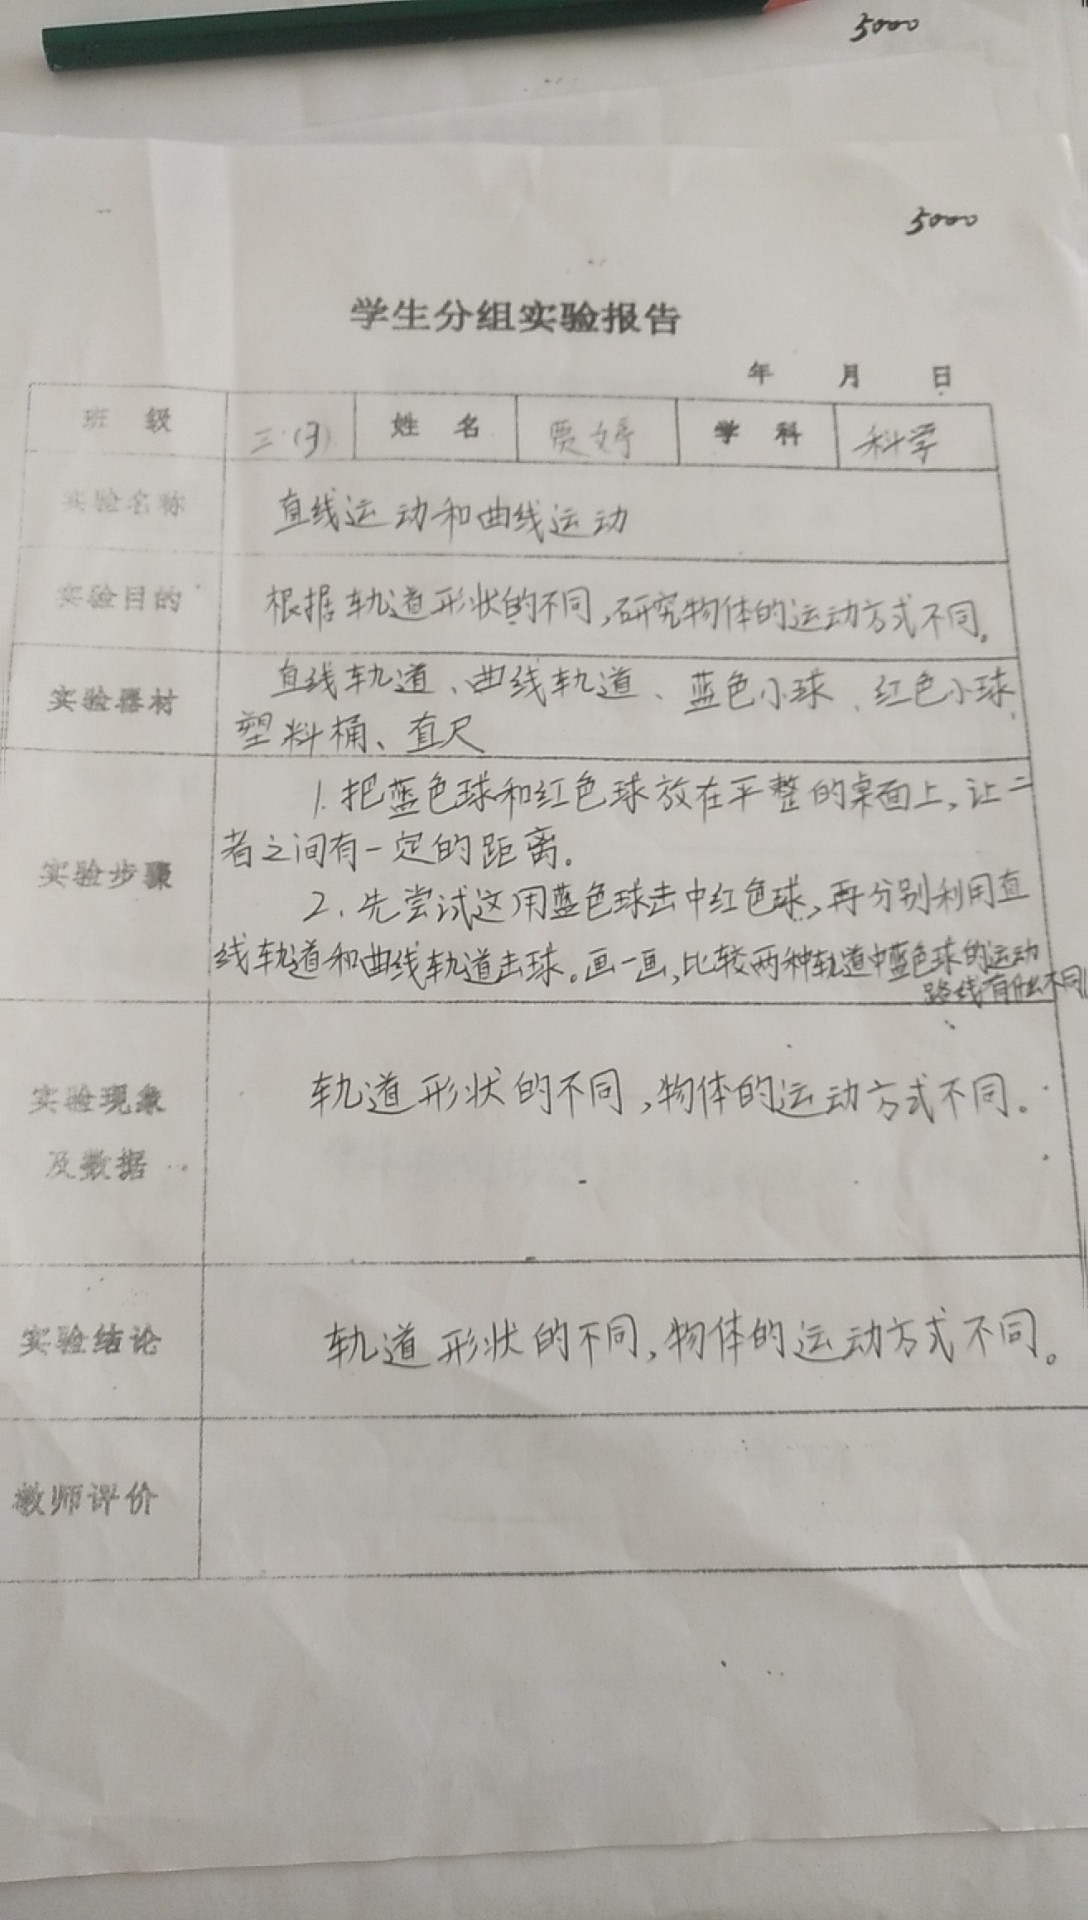 5000
5000
学生分组实验报告
年 月 日
班 级 三(3) 姓 名 贾婷 学 科 科学
实验名称 直线运动和曲线运动
实验目的 根据轨道形状的不同,研究物体的运动方式不同。
直线轨道、曲线轨道、蓝色小球、红色小球、
实验器材
塑料桶、直尺
1. 把蓝色球和红色球放在平整的桌面上,让二
者之间有一定的距离。
实验步骤
2. 先尝试这用蓝色球击中红色球,再分别利用直
线轨道和曲线轨道击球。画一画,比较两种轨道中蓝色球的运动
路线有什么不同
实验现象 轨道形状的不同,物体的运动方式不同。
及数据
实验结论 轨道形状的不同,物体的运动方式不同。
教师评价